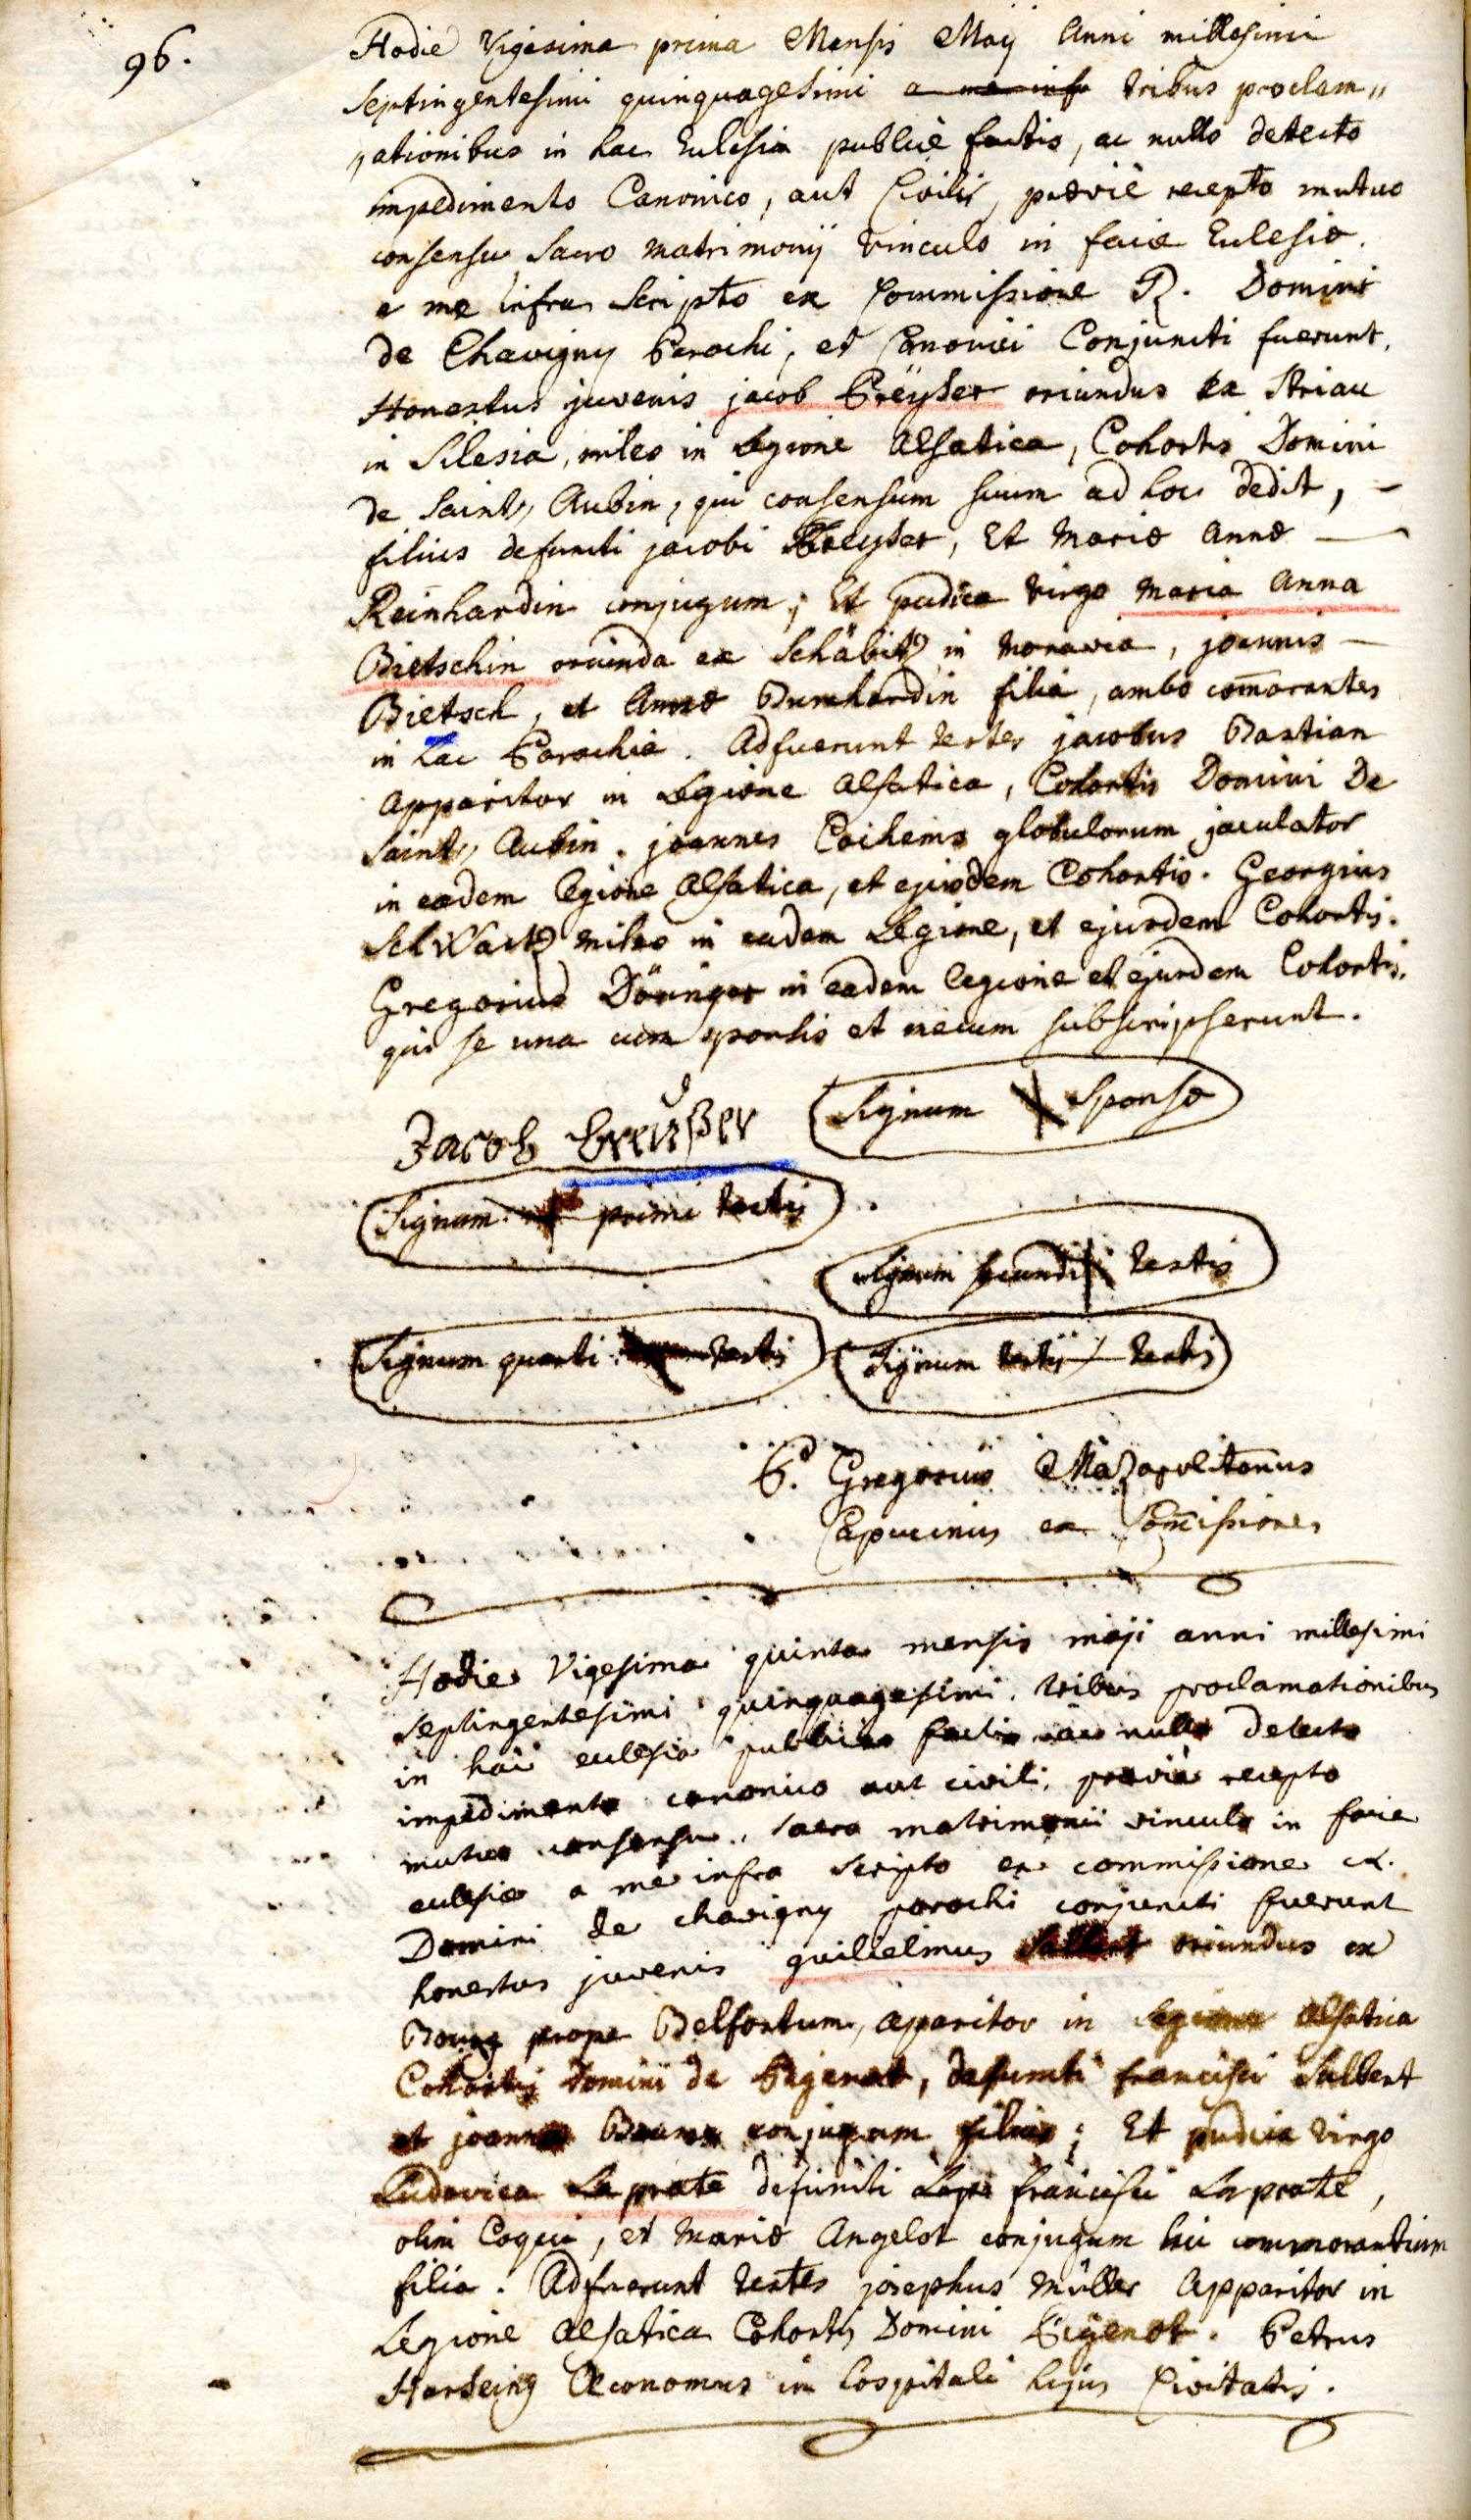 96.
Hodie Vigesima prima Mensis Maij Anni millesimi
Septingentesimi quinquagesimi a me infr tribus proclam„
„ationibus in hac Eulesia publicè factis, ac nullo detecto
impedimento Canonico, aut Civili, prævie recepto mutuo
consensu sacro matrimonij vinculo in facie Eulesiæ.
a me infra scripto ex Commissione R. Domini
de Chavigny Parochi, et Canonici Conjuncti fuerunt,
Honestus juvenis jacob Preyser oriundus ex Striau
in Silesia, miles in Legione Alsatica, Cohortis Domini
de Saint„ Aubin, qui consensum suum ad hoc dedit, –
filius defuncti jacobi Preyser, Et Mariæ Annæ —
Reinhardin conjugum; Et pudica virgo Maria Anna
Bietschin oriunda ex Schäbitz in Moravia, joannis —
Bietsch, et Annæ Burchardin filia, ambo com̄orantes
in hac Parochia. Adfuerunt testes jacobus Bastian
Apparitor in Legione Alsatica, Cohortis Domini De
Saint„ Aubin. joannes Cochems globulorum jaculator
in eadem legione Alsatica, et ejusdem Cohortis. Georgius
Schwartz miles in eadem Legione, et ejusdem Cohortis.
Gregorius Döringer in eadem legione et ejusdem Cohortis.
qui se una cum sponsis et mecum subscripserunt.
Jacob Preußer Signum Sponsæ
Signum primi testis
Signum secundi testis
Signum quarti testis Signum tertij testis
P. Gregorius Mazopolitanus
Capucinus ex Com̄issione
Hodie Vigesima quinta mensis maji anni millesimi
septingentesimi quinquagesimi. tribus proclamationibus
in hac eulesia publice factis ac nullo detecto
impedimento canonico aut civili, prævie recepto
mutuo consensu, sacro matrimonii vinculo in facie
eulesiæ a me infra scripto ex commissione R.
Domini de chavigny parochi conjuncti fuerunt
honestus juvenis guilielmus Salbert oriundus ex
Bourg prope Belfortum, Aparitor in Legione Alsatica
Cohortis Domini de Pigenot, defuncti francisci Salbert
et joannæ conjugum filius; Et pudica virgo
Ludovica La prate defuncti francisci Laprate,
olim Coqui, et Mariæ Angelot conjugum hic commorantium
filia. Adfuerunt testes josephus Müller Apparitor in
Legione Alsatica Cohortis Domini Pigenot. Petrus
Harseing Œconomus in hospitali hujus Civitatis.